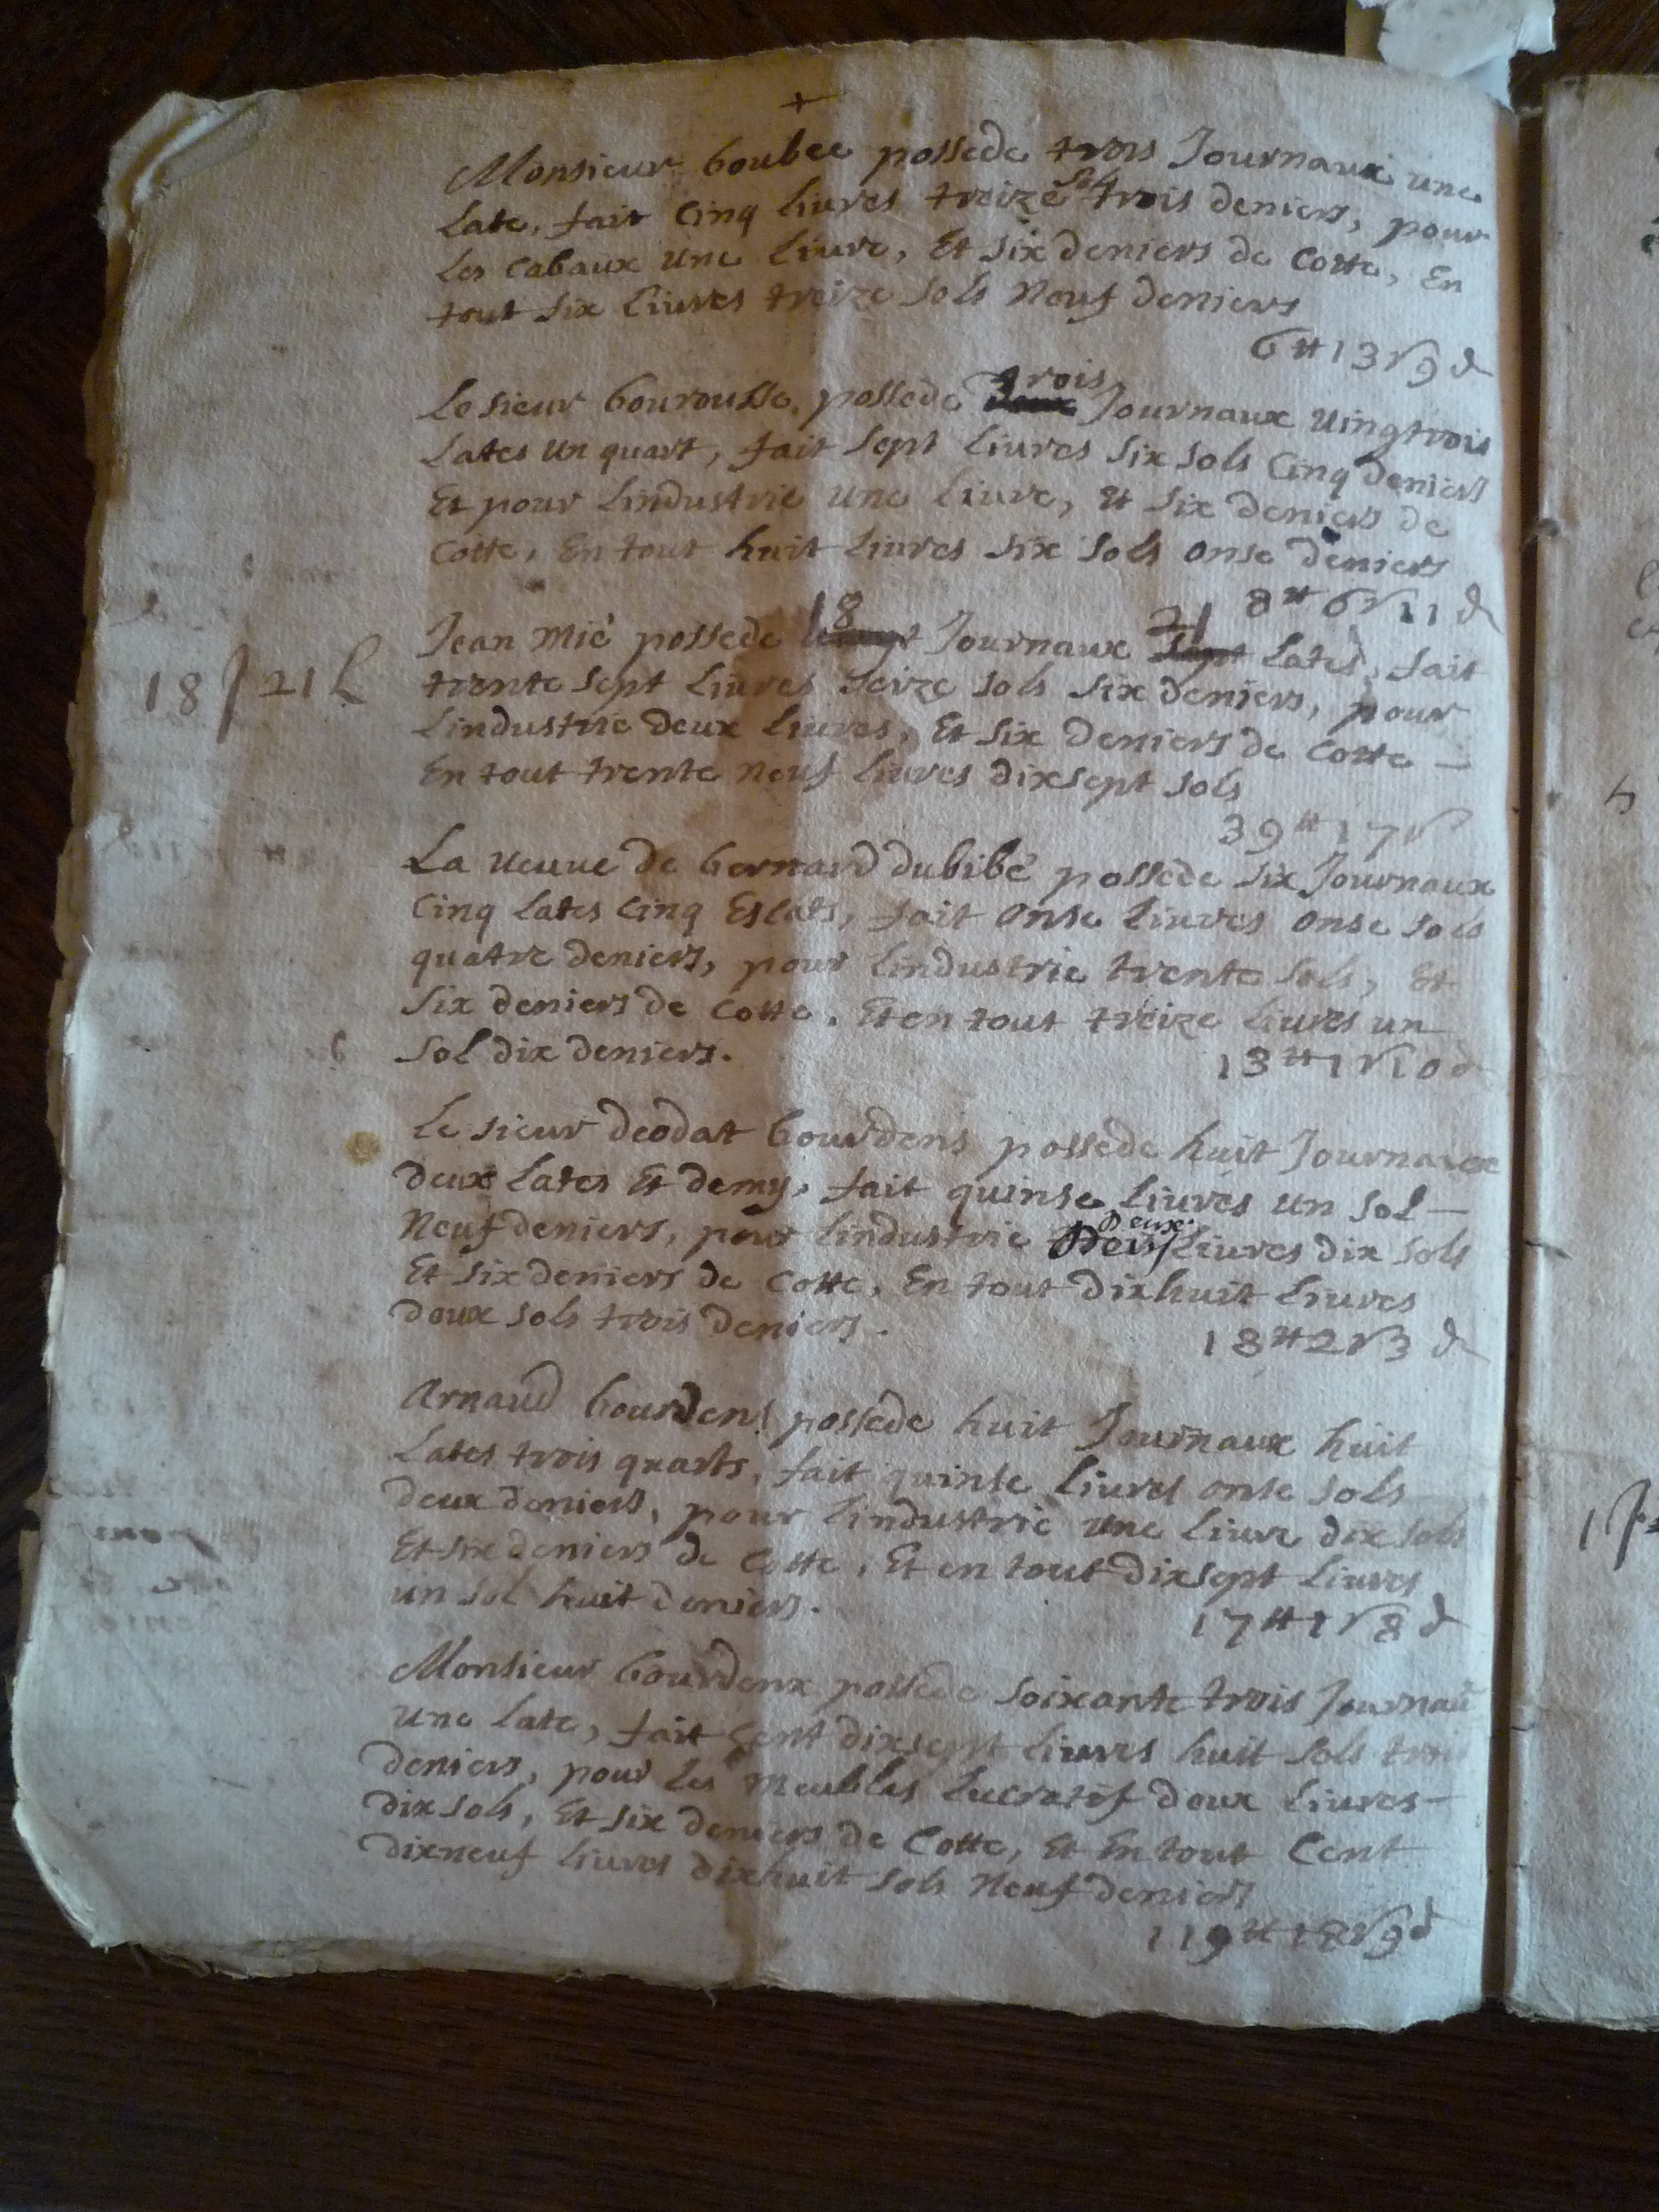 +
Monsieur boubee possede trois Journaux une
late, fait Cinq livres treize sols trois deniers, pour
les Cabaux une livre, Et six deniers de Cotte, En
tout six livres treize sols Neuf deniers
6 ₶ 13 s 9 d
Le sieur bourousse possede trois Journaux vingtrois
lates un quart, fait sept livres six sols Cinq deniers
Et pour lindustrie une livre, Et six deniers de
Cotte, En tout huit livres six sols onse deniers
8 ₶ 6 s 11 d
Jean Mié possede 18 Journaux 21 lates, fait
18 J 21 L
trente sept livres seize sols six deniers, pour
lindustrie deux livres, Et six deniers de Cotte —
En tout trente neuf livres dixsept sols
39 ₶ 17 s
La veuve de bernard dubibé possede six Journaux
Cinq lates Cinq Escats, fait onse livres onse sols
quatre deniers, pour lindustrie trente sols, Et
six deniers de Cotte, Et en tout treize livres un
sol dix deniers.
13 ₶ 1 s 10 d
Le sieur deodat bourdens possede huit Journaux
deux lates Et demy, fait quinse livres un sol —
Neuf deniers, pour lindustrie deux livres dix sols
Et six deniers de Cotte, En tout dixhuit livres
deux sols trois deniers.
18 ₶ 2 s 3 d
Arnaud bourdens possede huit Journaux huit
lates trois quarts, fait quinse livres onse sols
deux deniers, pour lindustrie une livre dix sols
Et six deniers de Cotte, Et en tout dixsept livres
un sol huit deniers.
17 ₶ 1 s 8 d
Monsieur bourdenx possede soixante trois Journau
une late, fait Cent dixsept livres huit sols trois
deniers, pour les Meubles lucratif deux livres —
dix sols, Et six deniers de Cotte, Et En tout Cent
dixneuf livres dixhuit sols Neuf deniers
119 ₶ 18 s 9 d